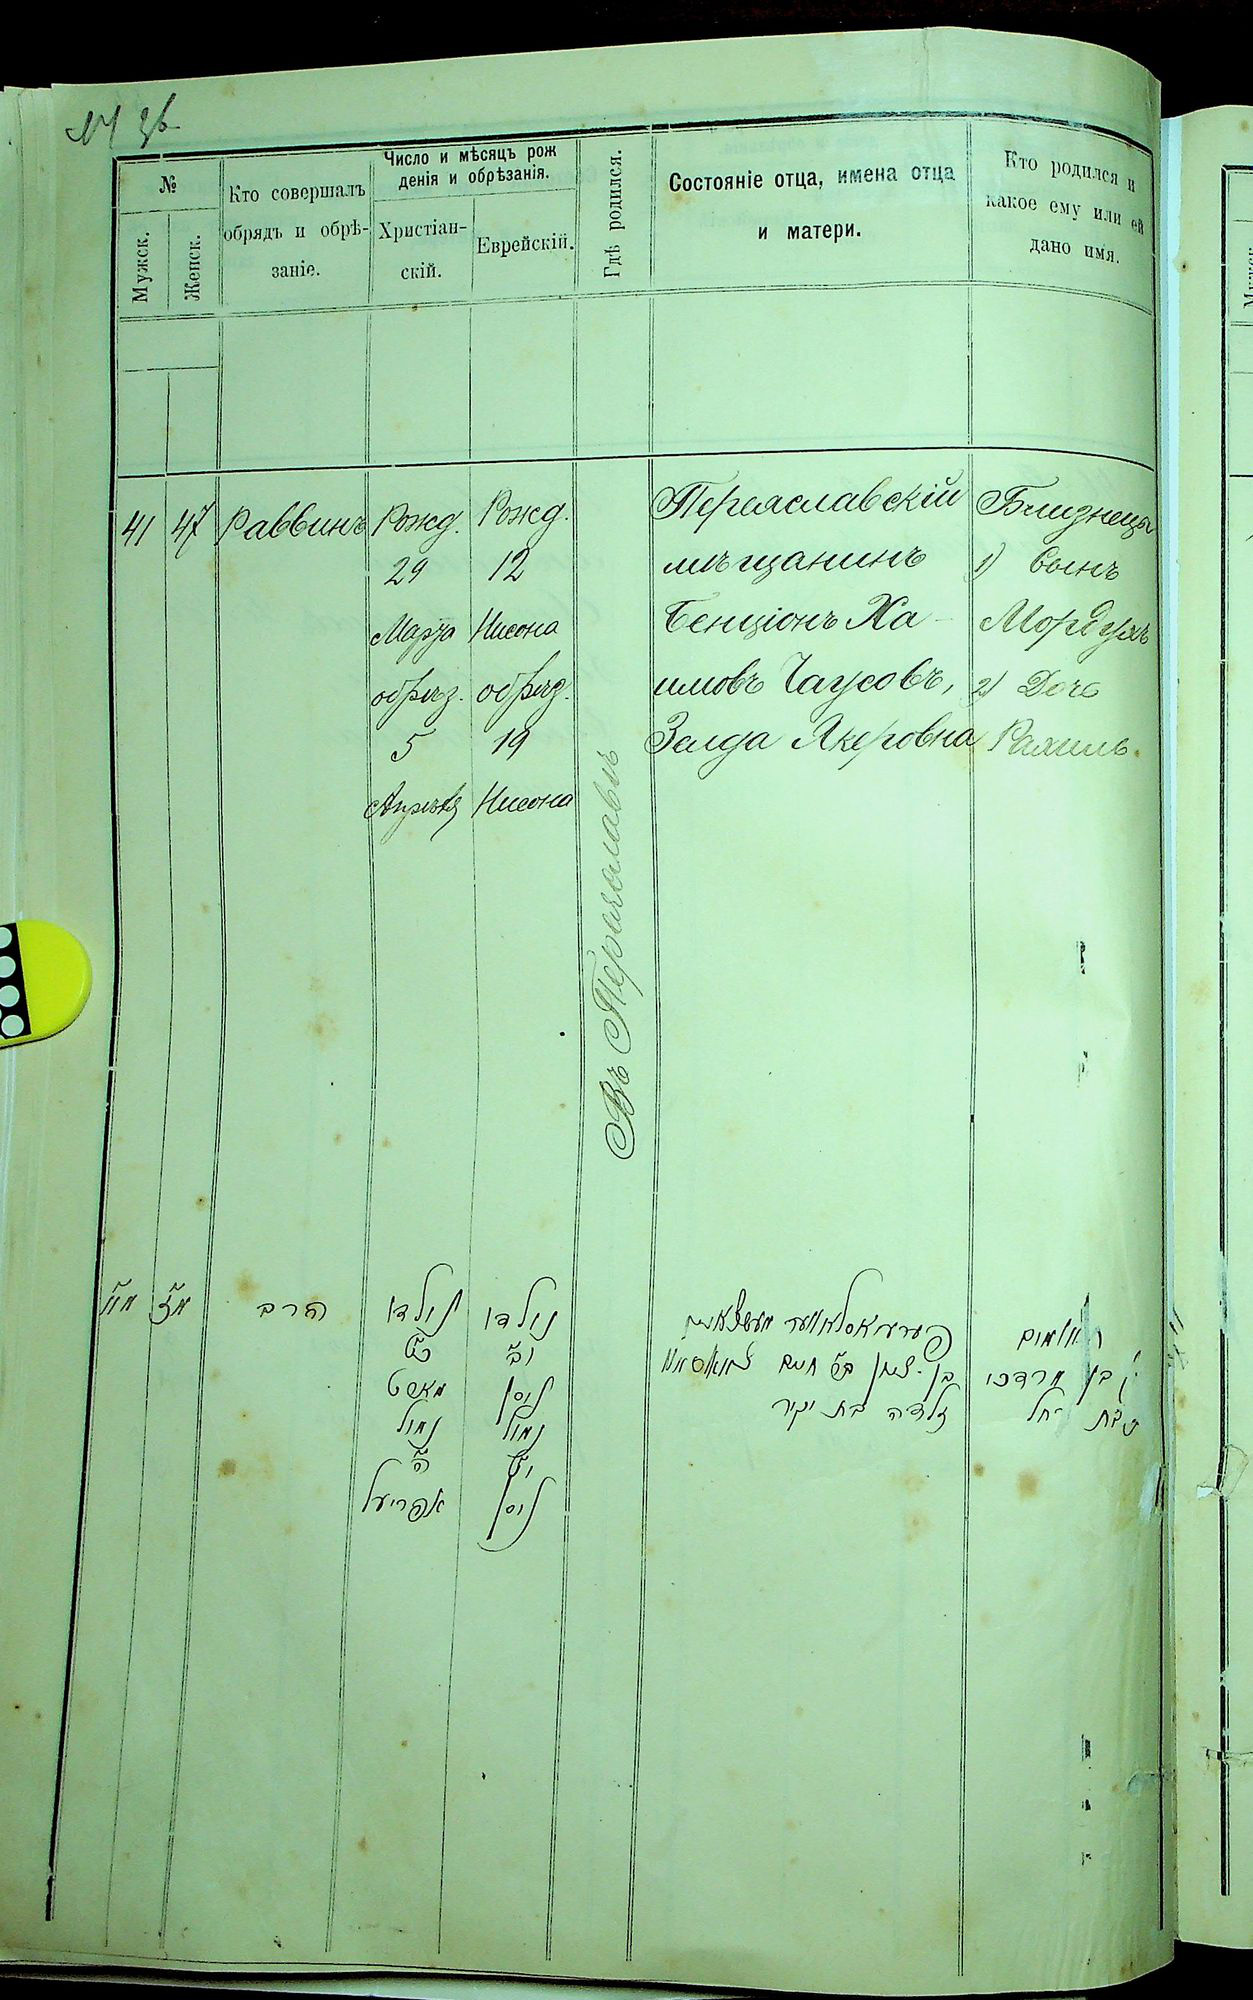 №
Мужск.
Женск.
Кто совершалъ
обрядъ и обрѣ-
заніе.
Число и мѣсяцъ рож
денія и обрѣзанія.
Христіан-
скій.
Еврейскій.
Гдѣ родился.
Состояніе отца, имена отца
и матери.
Кто родился и
какое ему или ей
дано имя.
41
47
Раввинъ
Рожд.
29
Марта
обрѣз.
5
Апрѣля
Рожд.
12
Нисона
обрѣз.
19
Нисона
Въ Переяславлѣ
Переяславскій
мѣщанинъ
Бенціонъ Ха-
имовъ Чаусовъ,
Зелда Якеровна
Близнецы
1) Сынъ
Мордухъ
2) Дочь
Рахиль.
הרב
נולדו
כ״ט
מארט
נמול
ה״
אפריעל
נולדו
י״ב
ניסן
נמול
י״ט
ניסן
בן ציון חיים
זלדה בת יקיר
תאומים
בן מרדכי
בת רחל